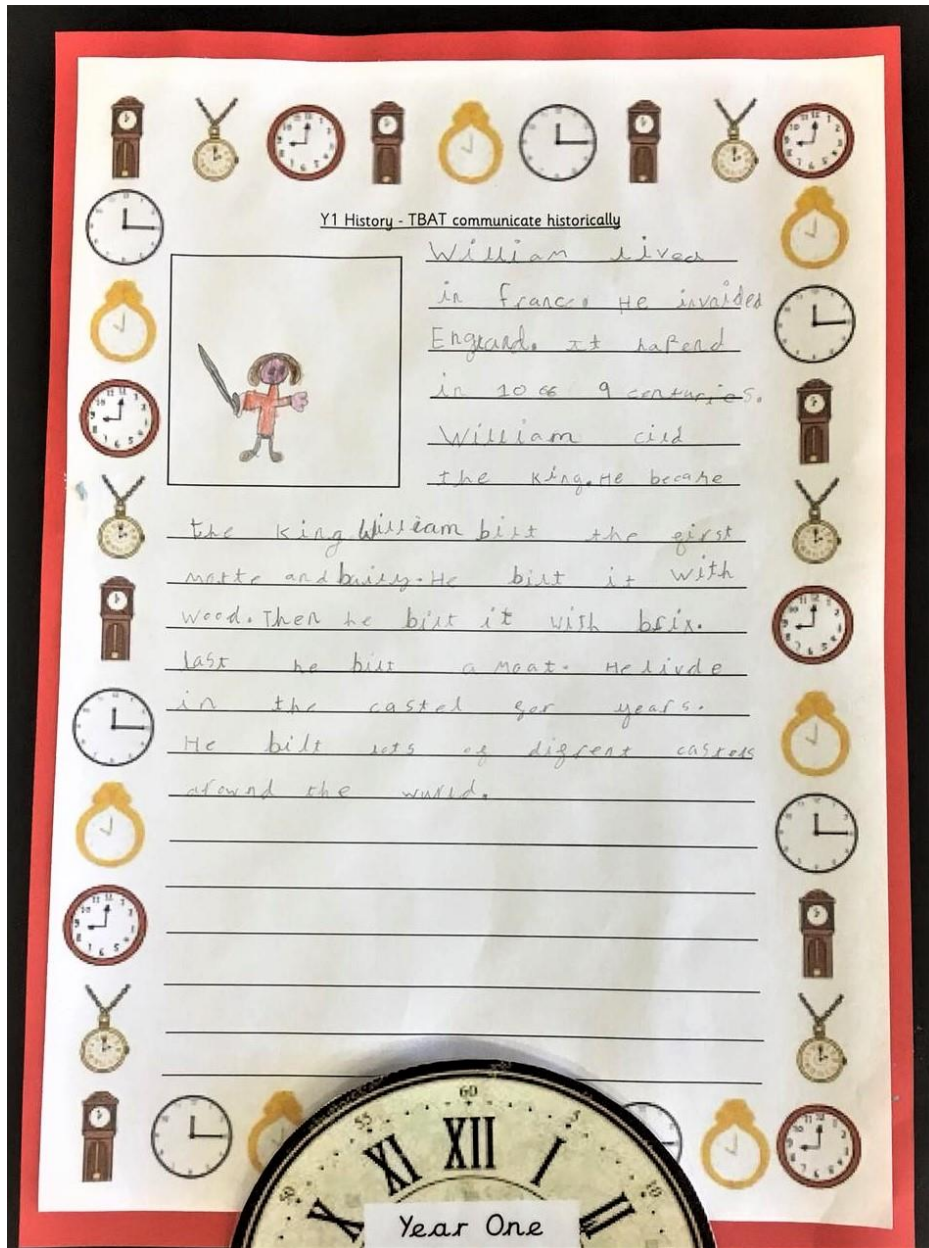 Y1 History - TBAT communicate historically
William lived
in franc. He invaided
England. It hapend
in 1066 9 centuries.
William cild
the king. He became
the king William bilt the first
motte and baily. He bilt it with
wood. Then he bilt it with brix.
last he bilt a moat. He livde
in the castel for years.
He bilt lots of difrent castels
arownd the wurld.
60
55 5
50 10
X XI XII I II
Year One